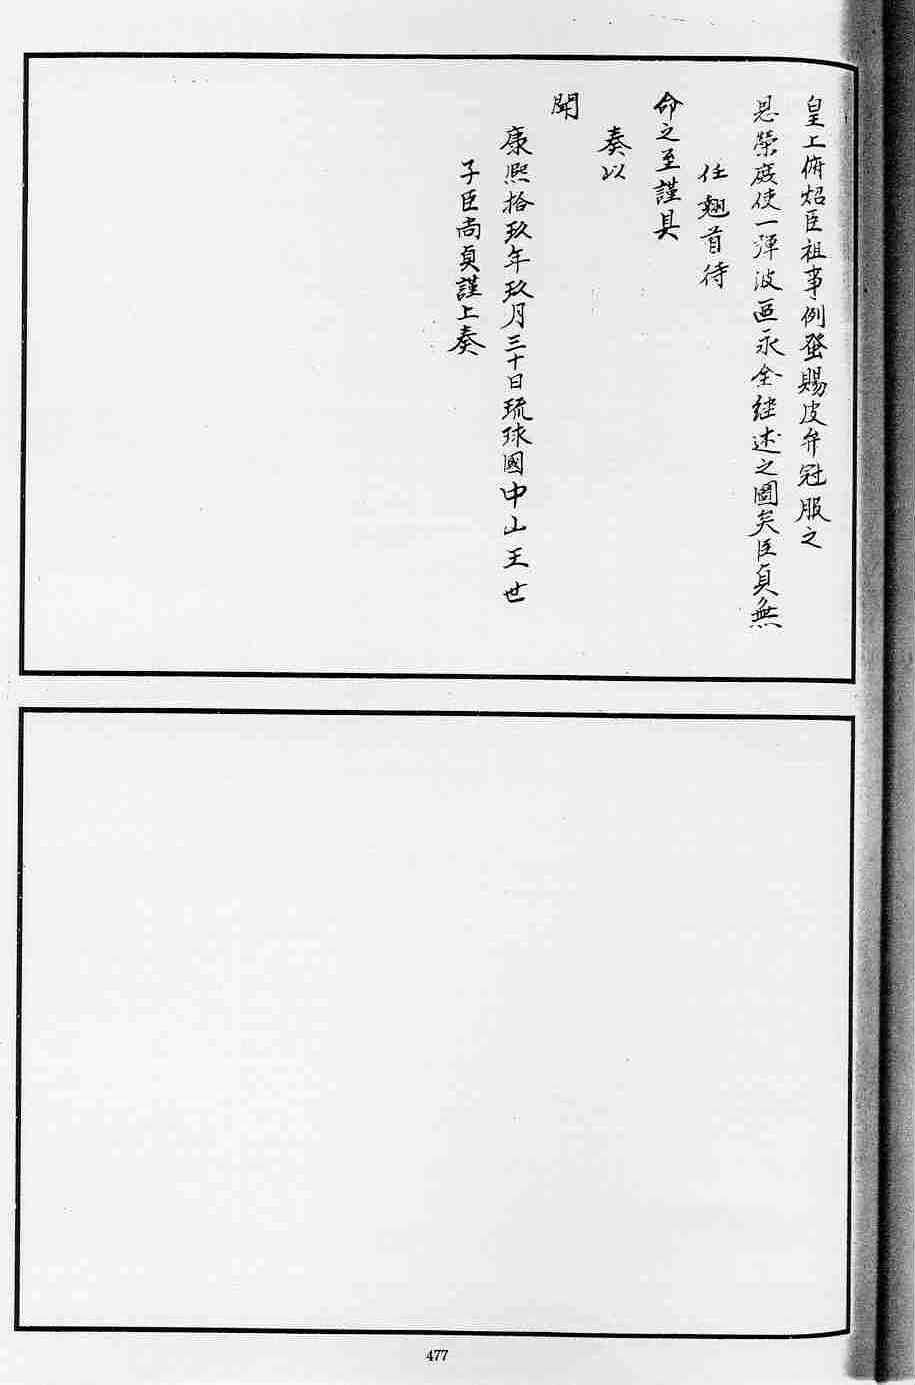 皇上俯炤臣祖事例發賜皮弁冠服之
恩榮庶使一彈波區永全継述之圖矣臣貞無
任翹首待
命之至謹具
奏以
聞
康熙拾玖年玖月三十日琉球國中山王世
子臣尚貞謹上奏
477